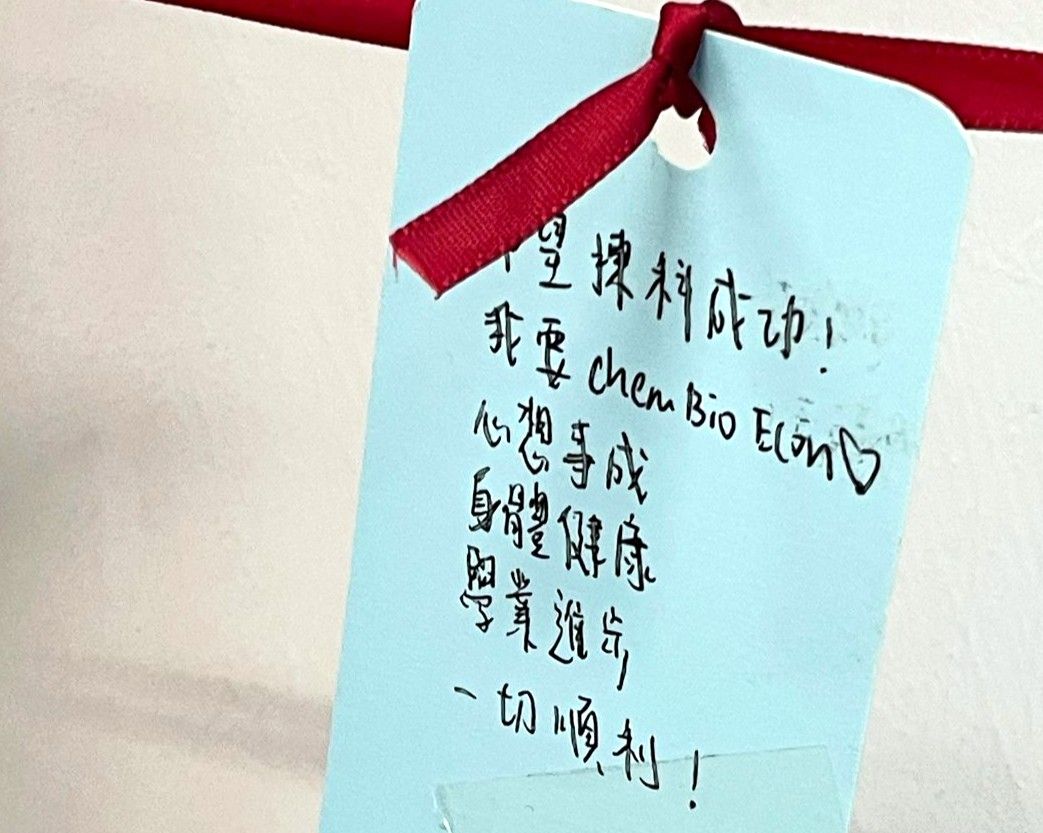 希望揀科成功!
我要 Chem Bio Econ♡
心想事成
身體健康
學業進步
一切順利!